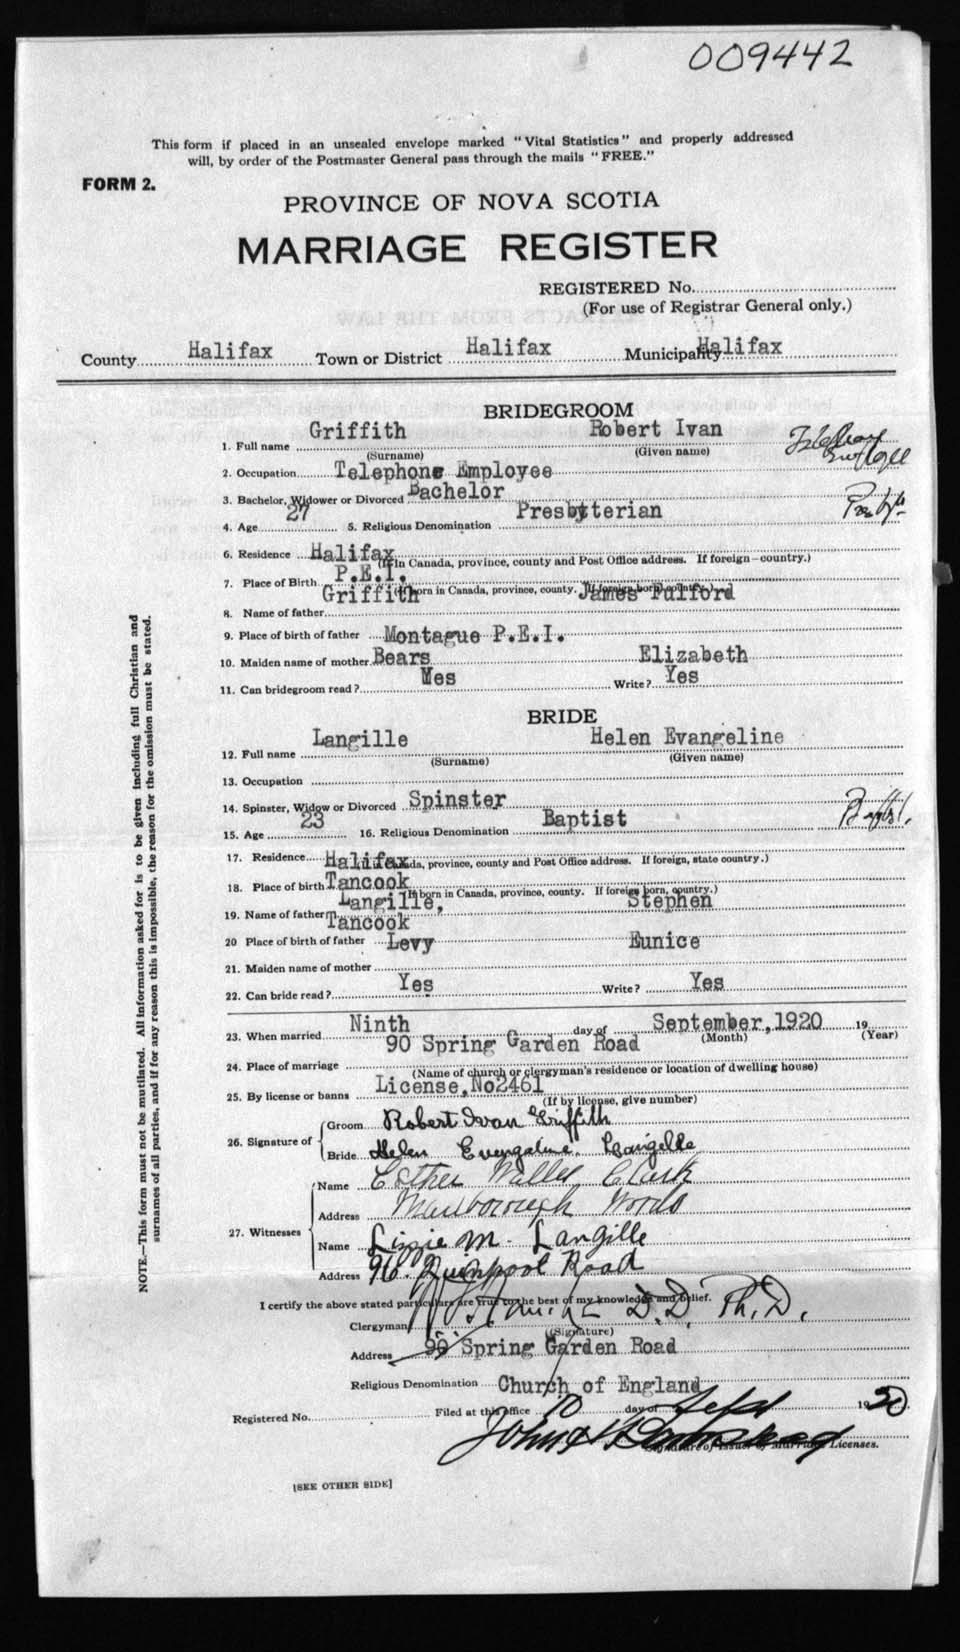 009442
This form if placed in an unsealed envelope marked "Vital Statistics" and properly addressed
will, by order of the Postmaster General pass through the mails "FREE."
FORM 2.
PROVINCE OF NOVA SCOTIA
MARRIAGE REGISTER
REGISTERED No.
(For use of Registrar General only.)
County Halifax Town or District Halifax Municipality Halifax
BRIDEGROOM
1. Full name Griffith Robert Ivan
(Surname) (Given name)
2. Occupation Telephone Employee
3. Bachelor, Widower or Divorced Bachelor
4. Age 27 5. Religious Denomination Presbyterian
6. Residence Halifax
(If in Canada, province, county and Post Office address. If foreign—country.)
7. Place of Birth P.E.I.
(If born in Canada, province, county. If foreign born, country.)
8. Name of father Griffith James Fulford
9. Place of birth of father Montague P.E.I.
10. Maiden name of mother Bears Elizabeth
11. Can bridegroom read? Yes Write? Yes
BRIDE
12. Full name Langille Helen Evangeline
(Surname) (Given name)
13. Occupation
14. Spinster, Widow or Divorced Spinster
15. Age 23 16. Religious Denomination Baptist Baptist.
17. Residence Halifax
(If in Canada, province, county and Post Office address. If foreign, state country.)
18. Place of birth Tancook
(If born in Canada, province, county. If foreign born, country.)
19. Name of father Langille, Stephen
20 Place of birth of father Tancook
21. Maiden name of mother Levy Eunice
22. Can bride read? Yes Write? Yes
23. When married Ninth day of September, 1920 19
(Month) (Year)
24. Place of marriage 90 Spring Garden Road
(Name of church or clergyman's residence or location of dwelling house)
25. By license or banns License, No2461
(If by license, give number)
26. Signature of
Groom Robert Ivan Griffith
Bride Helen Evengaline Langille
27. Witnesses
Name Esther Clark
Address Marlborough Woods
Name Lizzie M. Langille
Address 96 Quinpool Road
I certify the above stated particulars are true to the best of my knowledge and belief.
Clergyman D.D. Ph.D.
(Signature)
Address 90 Spring Garden Road
Religious Denomination Church of England
Registered No. Filed at this office 10 day of Sept 1920
Signature of Issuer of Marriage Licenses.
[SEE OTHER SIDE]
NOTE.—This form must not be mutilated. All information asked for is to be given including full Christian and
surnames of all parties, and if for any reason this is impossible, the reason for the omission must be stated.